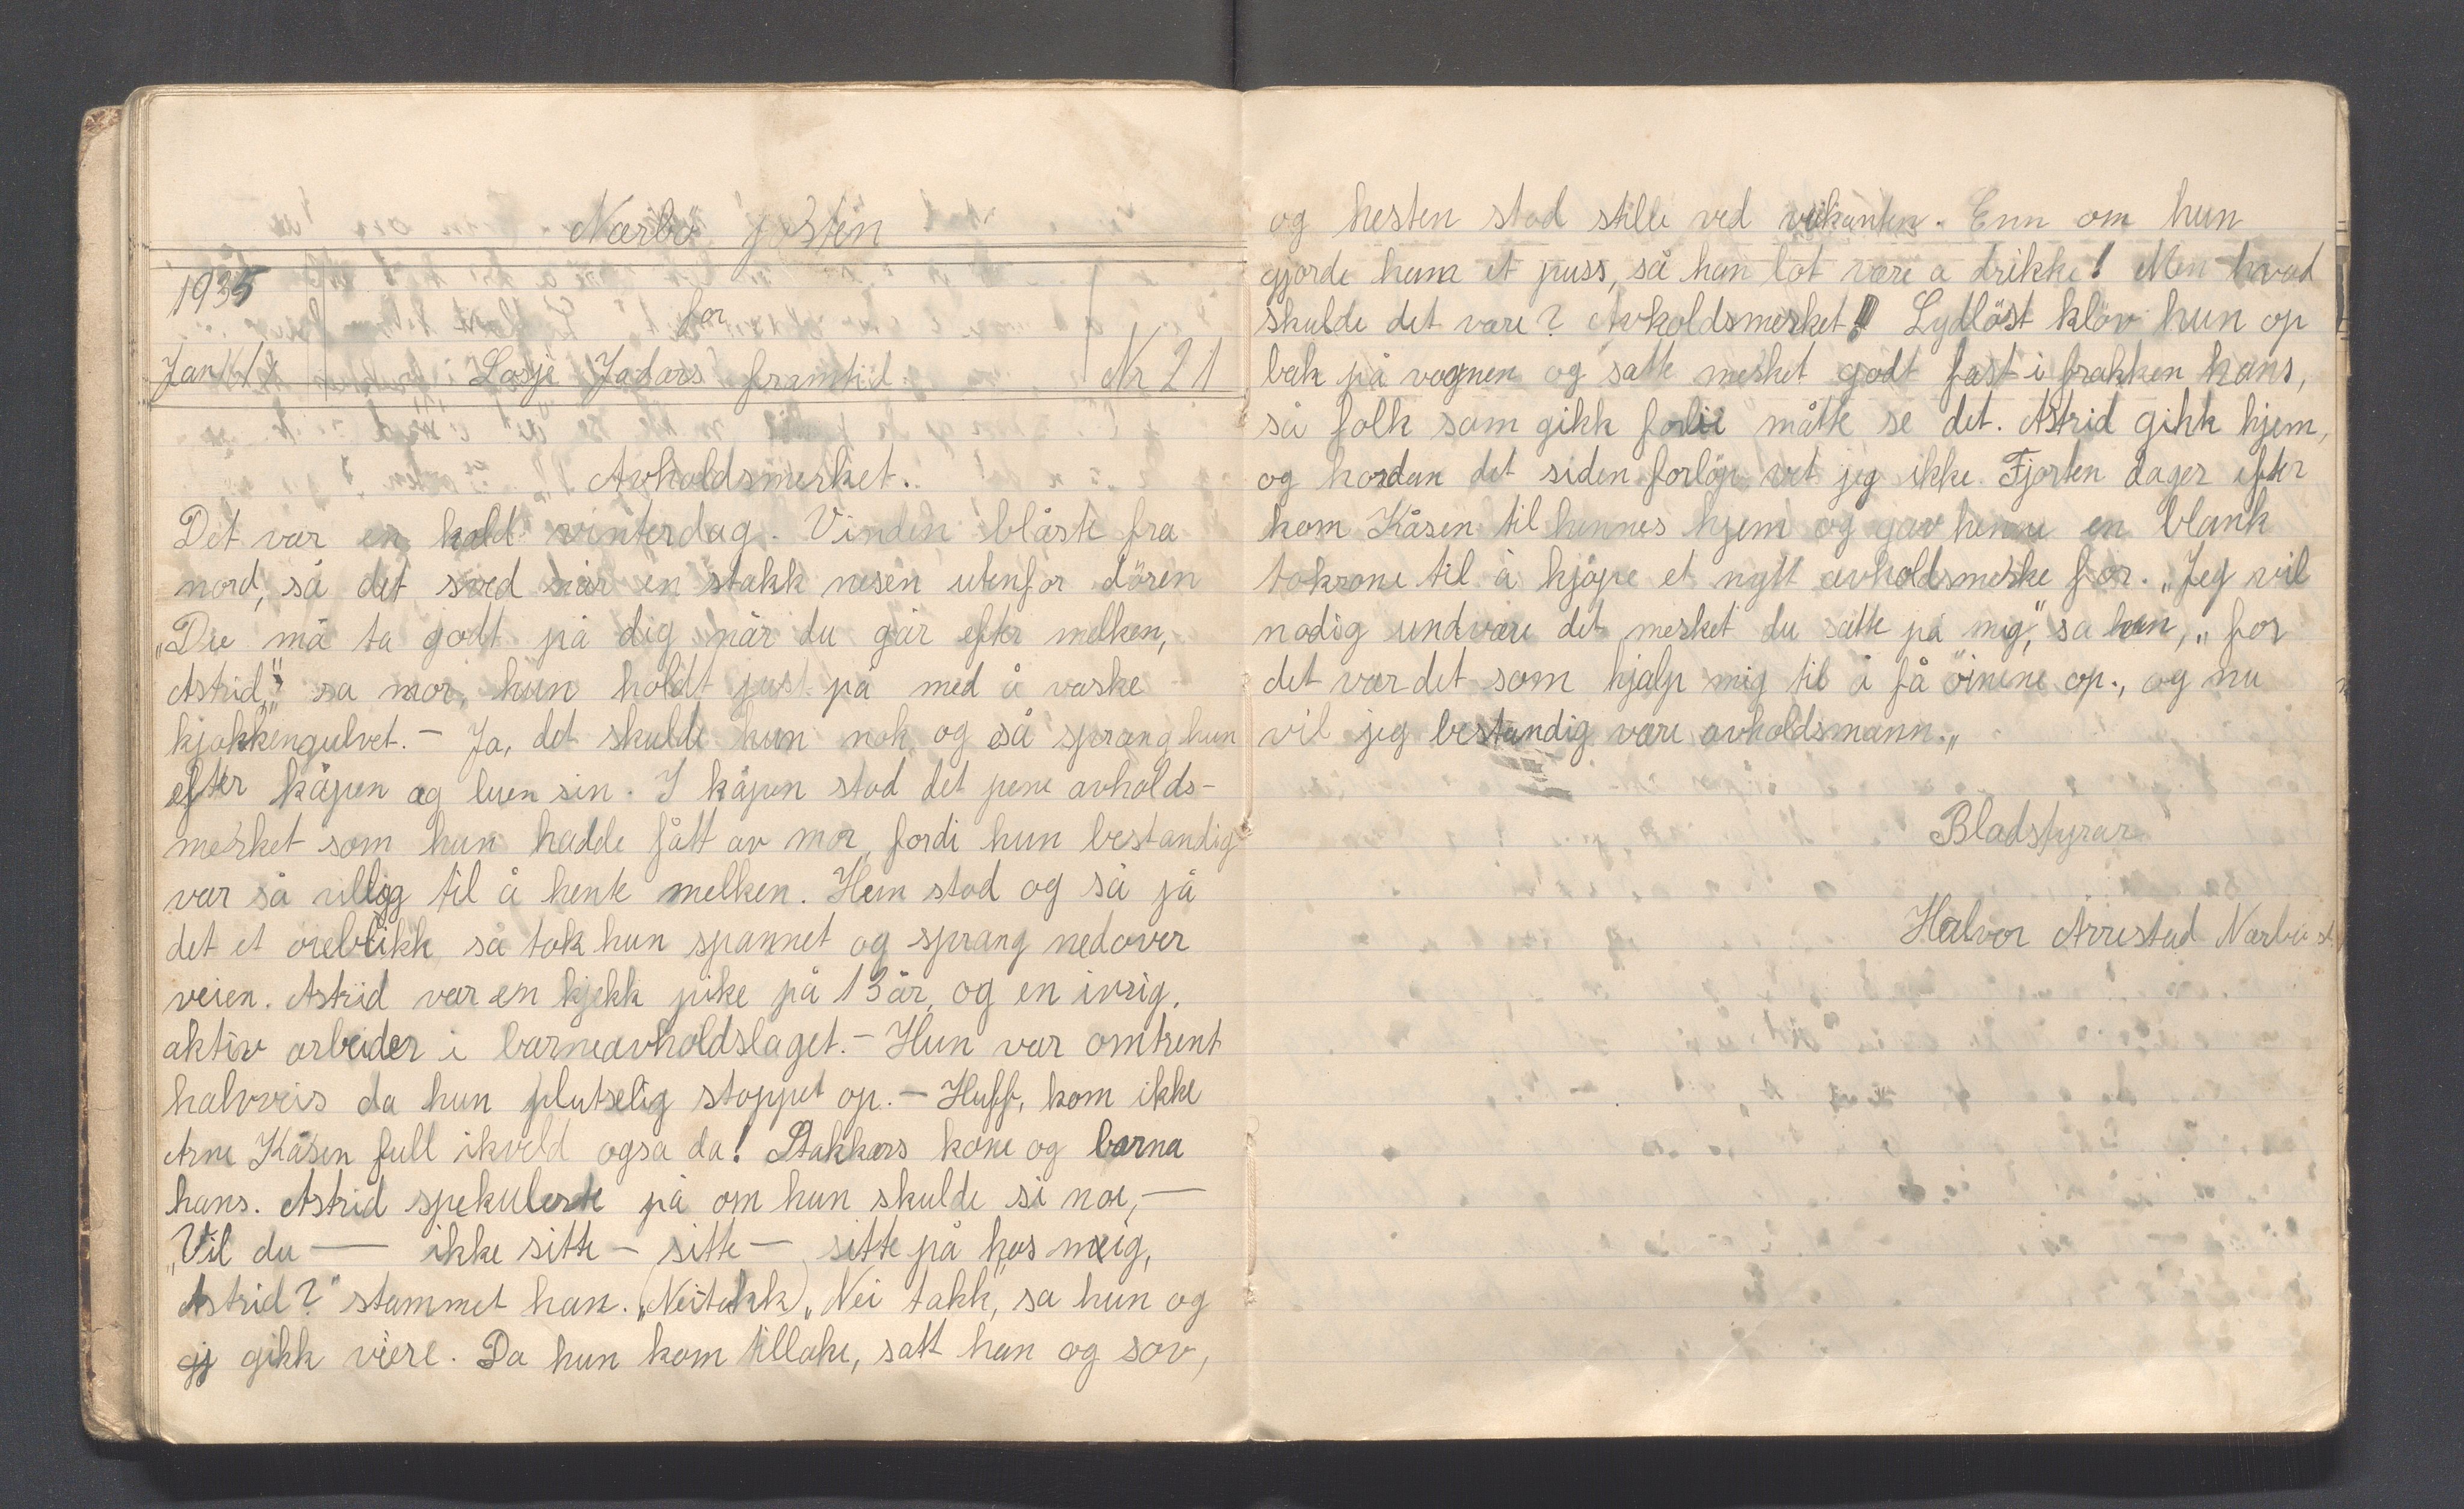 Nærbö posten
1935
for
Jan 17 Losje Jadars framtid. Nr 21
Avholdsmerket.
Det var en kald vinterdag. Vinden blåste fra
nord, så det sved når en stakk nesen utenfor dören
„Du må ta godt på dig når du går efter melken,
Astrid," sa mor, hun holdt just på med å vaske
kjøkkengulvet. – Ja, det skulde hun nok og så sprang hun
efter kåpen og luen sin. I kåpen stod det pene avholds-
merket som hun hadde fått av mor, fordi hun bestandig
var så villig til å hente melken. Hun stod og så på
det et øieblikk så tok hun spannet og sprang nedover
veien. Astrid var en kjekk pike på 13 år, og en ivrig,
aktiv arbeider i barneavholdslaget. – Hun var omtrent
halvveis da hun plutselig stoppet op. – Huff, kom ikke
Arne Kåsen full ikveld ogsa da! Stakkars kone og barna
hans. Astrid spekulerte på om hun skulde si noe, –
„Vil du — ikke sitte – sitte – sitte på hos meig,
Astrid?" stammet han. („Neitakk) „Nei takk", sa hun og
gj gikk viere. Da hun kom tilbake, satt han og sov,
og hesten stod stille ved veikanten. Enn om hun
gjorde ham et puss, så han lot være a drikke! Men hvad
skulde det være? Avholdsmerket! Lydlöst klöv hun op
bak på vognen og satte merket godt fast i frakken hans,
så folk som gikk forbi måtte se det. Astrid gikk hjem,
og hordan det siden forløp vet jeg ikke. Fjorten dager efter
kom Kåsen til hennes hjem og gav henne en blank
tokrone til å kjøpe et nytt avholdsmerke for. „Jeg vil
nodig undvære det merket du satte på mig," sa han, „for
det var det som hjalp mig til å få öinene op., og nu
vil jeg bestandig være avholdsmann.„
Bladstyrar
Halvor Årrestad Nærbö st.